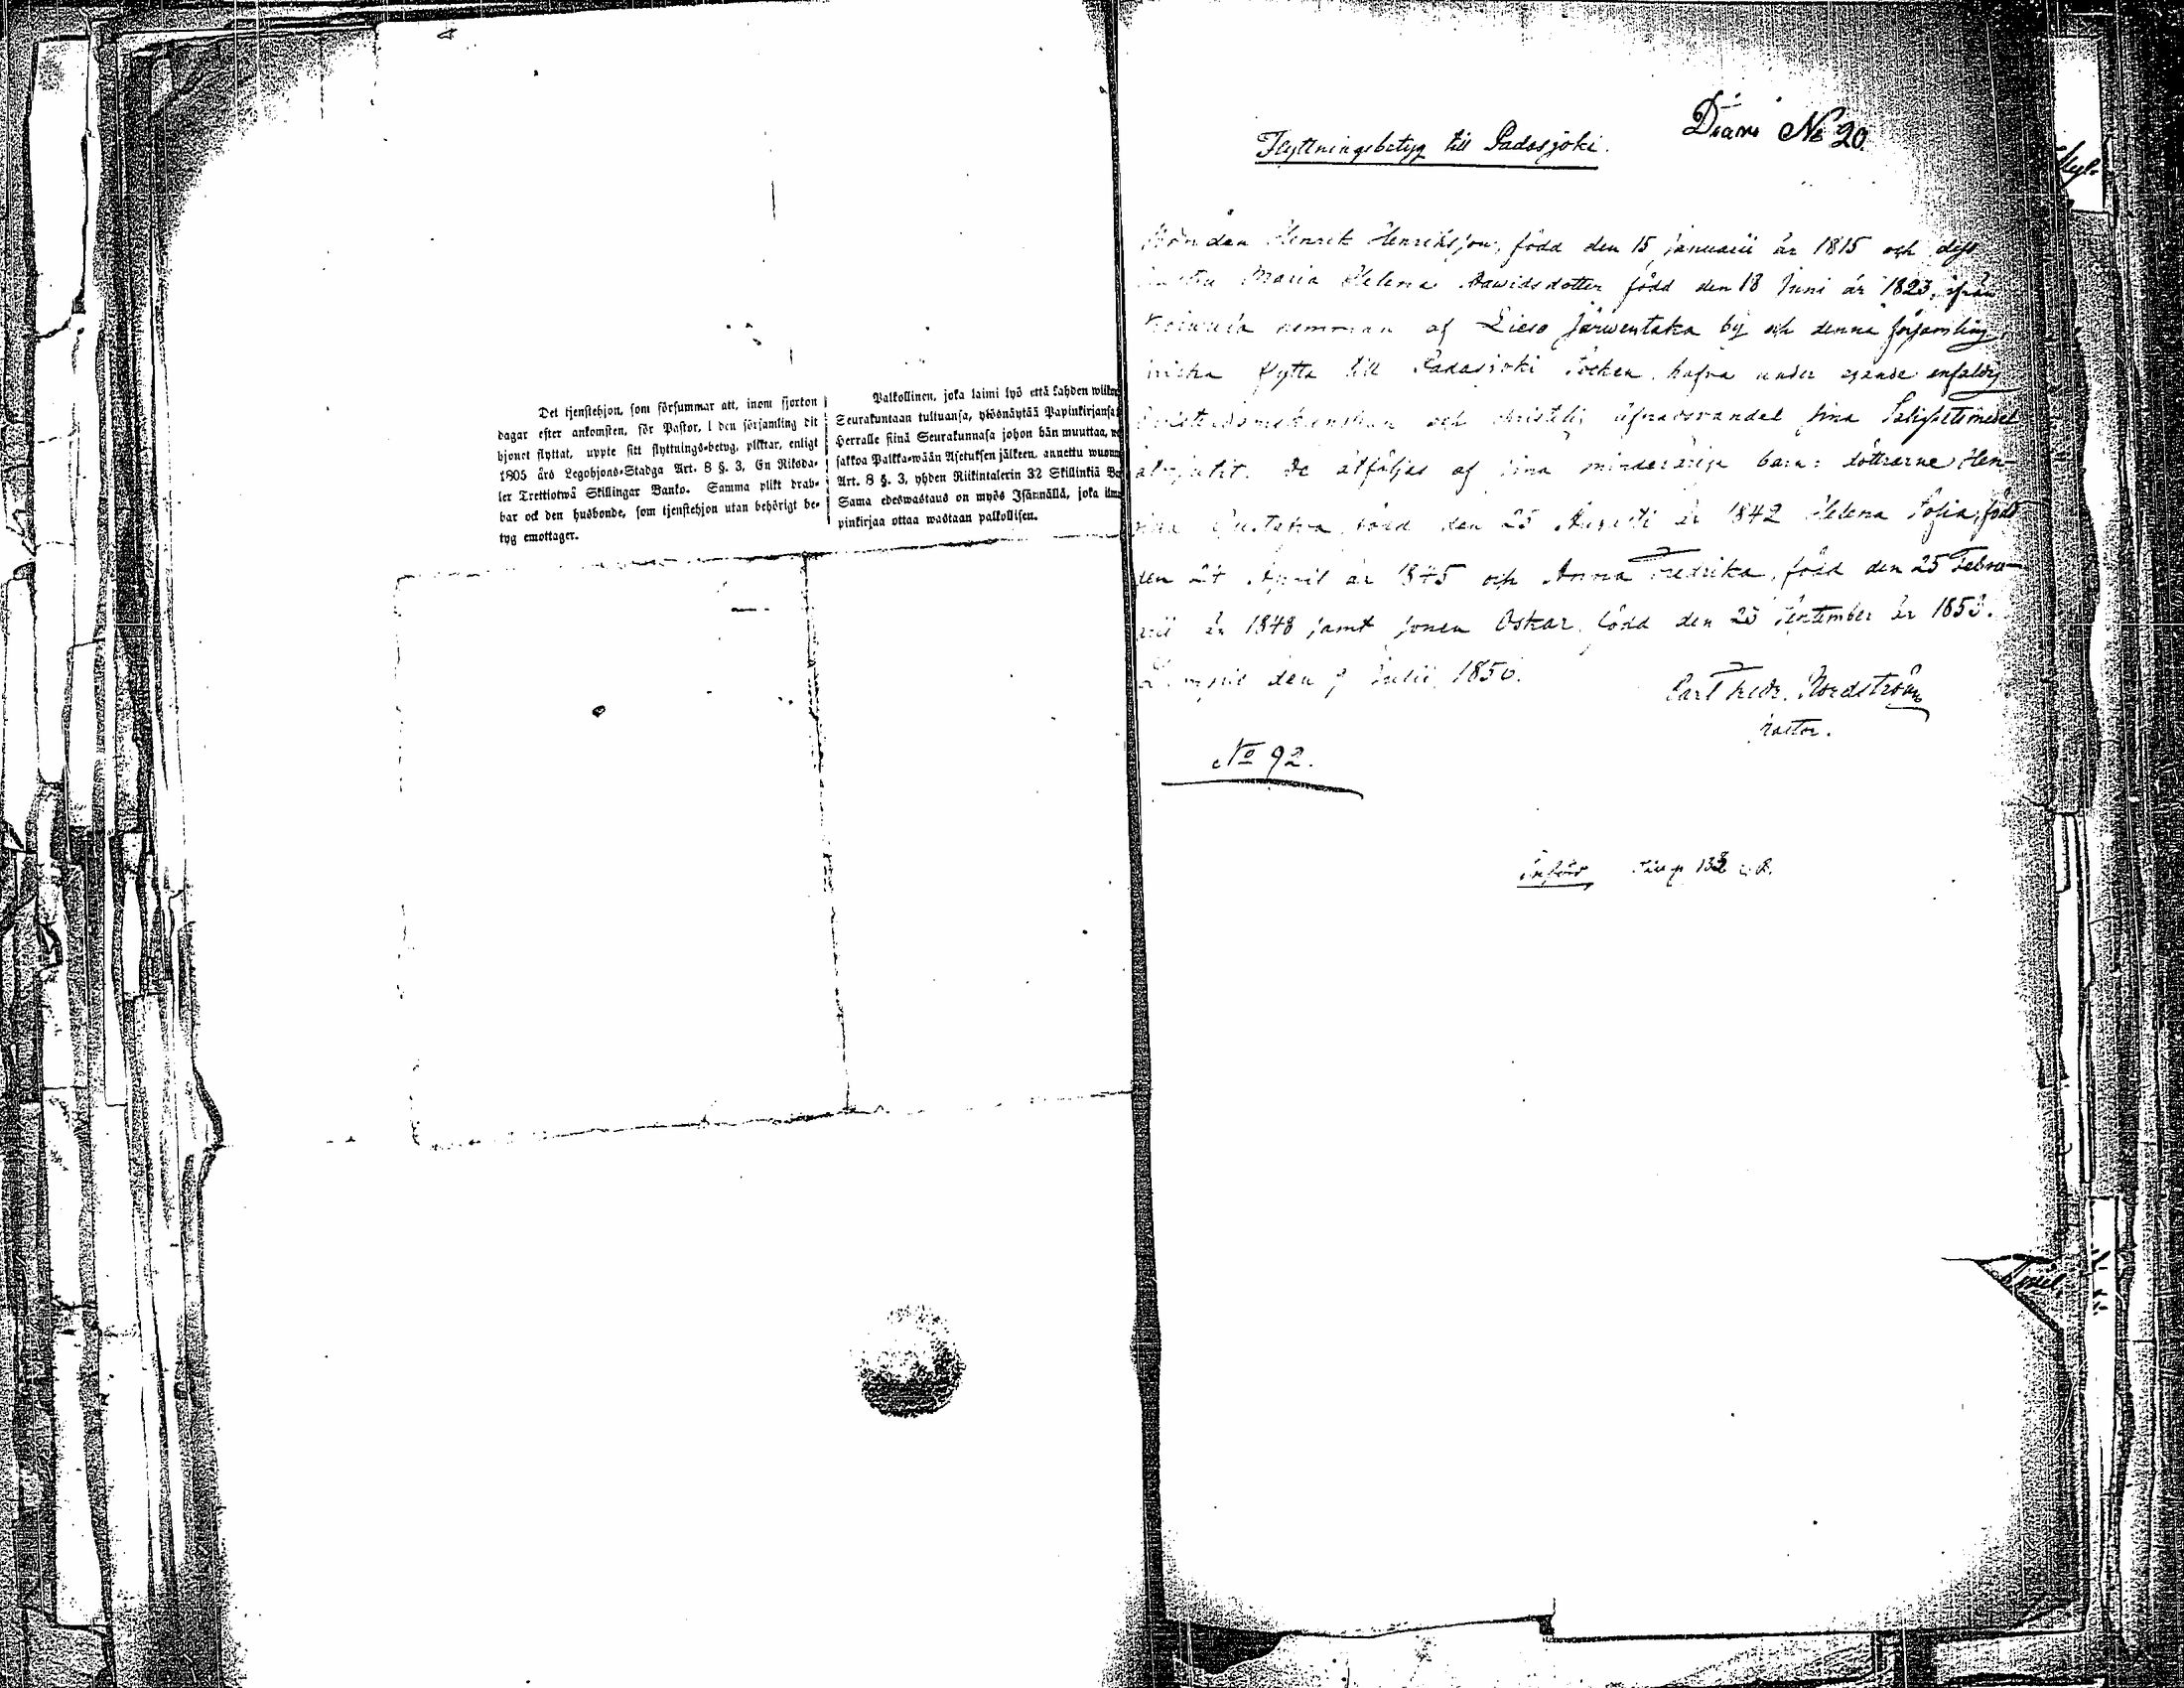 Det tjenstehjon, som försummar att, inom fjorton
dagar efter ankomsten, för Pastor, i den församling dit
hjonet flyttat, uppte sitt flyttnings-betyg, pliktar, enligt
1805 års Legohjons-Stadga Art. 8 §. 3, En Riksda-
ler Trettiotwå Skillingar Banko. Samma plikt drab-
bar ock den husbonde, som tjenstehjon utan behörigt be-
tyg emottager.
Palkollinen, joka laimi lyö että kahden wiikon
Seurakuntaan tultuansa, ylösnäytää Papinkirjansa
Herralle siinä Seurakunnasa johon hän muuttaa,
sakkoa Palkka-wään Asetuksen jälkeen, annettu wuonna
Art. 8 §. 3, yhden Riikintalerin 32 Skillinkiä
Sama edeswastaus on myös Isännällä, joka ilman
pinkirjaa ottaa wastaan palkollisen.
Diari No 20.
Flyttningsbetyg till Padasjoki.
Henrik Henriksson, född den 15 Januarii år 1815 och dess
Maria Helena Dawidsdotter född den 18 Juni år 1823, ifrån
hemman af Lieso Järwentaka by och denna församling
flytta till Padasjoki Socken, hafva under egande enfaldig
och christelig lefnadsvandel sina Salighetsmedel
De åtföljas af sina minderåriga barn: döttrarne Hen-
Gustava, född den 25 Augusti år 1842 Helena Sofia, född
den 24 April år 1845 och Anna Fredrika, född den 25 Febru-
arii år 1848 samt sonen Oskar, född den 23 September år 1853.
den 9 Julii 1856.
Carl Fredr. Nordström
Pastor.
No 92.
Införd